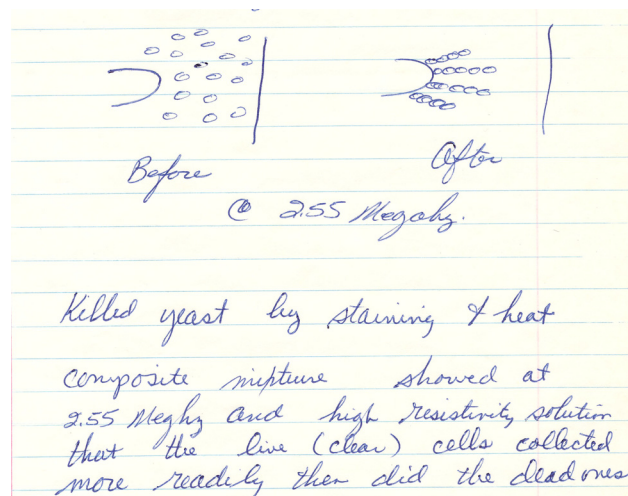 Before
After
@ 2.55 Megahz.
Killed yeast by staining & heat
composite mixture showed at
2.55 Meghz and high resistivity solution
that the live (clear) cells collected
more readily then did the dead ones